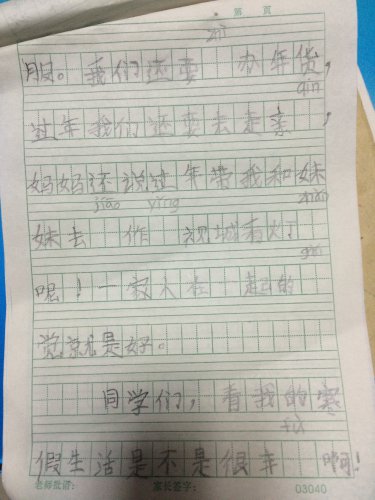 第 页
zhì
服。我们还要 办年货，
qīn
过年我们还要去走亲，
妈妈还说过年带我和妹
jiāo yǐng
妹去 作 视城看灯
呢！一家人在一起的
gǎn
觉就是好。
同学们，看我的寒
fù
假生活是不是很丰 啊！
老师批语： 家长签字： 03040